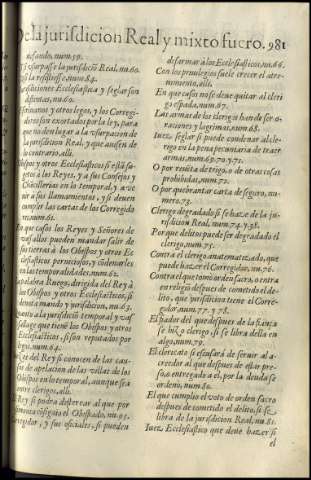 De la jurisdicion Real y mixto fuero. 981
rusando, num.59.
usurpasse la jurisdiciō Real, nu.60.
la resistiesse, num.84.
Ecclesiastica y seglar son
distintas, nu.60.
y otros legos, y los Corregi-
son exortados por la ley, para
que no den lugar a la usurpacion de
la jurisdicion Real, y que ansen de
lo contrario, alli.
Obispos y otros Ecclesiasticos si está su-
getos à los Reyes, y a sus Consejos y
Chācillerias en lo temporal, y a ve-
nir a sus llamamientos, y si deuen
cumplir las cartas de los Corregido
res, num.61.
En que casos los Reyes y Señores de
vassallos pueden mandar salir de
sus tierras à los Obispos y otros Ec-
clesiasticos perniciosos, y cōdenarles
en las temporalidades, num.62.
La palabra Ruego, dirigida del Rey à
los Obispos y otros Ecclesiasticos, si
denota mando y jurisdiciō, num.63.
quanto a la jurisdiciō temporal y vas-
sallage que tienē los Obispos y otros
Ecclesiasticos, si son reputados por
legos, num.64.
del Rey si conocen de las cau-
sas de apelacion de las villas de los
Obispos en lo temporal, aunque sea
entre clerigos, alli.
Rey si podra desterrar al que por
simonia cōsiguio el Obispado, nu.65.
Corregidor, y sus oficiales, si pueden
desarmar a los Ecclesiasticos, nu.66.
Con los privilegios suele crecer el atre-
uimiento, alli.
En que casos no se deue quitar al cleri
go espada, num.67.
Las armas de los clerigos han de ser o-
raciones y lagrimas, num.68.
Iuez seglar si puede condenar al cle-
rigo en la pena pecuniaria de traer
armas, num.69.70.y 71.
O por reuēta de trigo, o de otras cosas
prohibidas, num.72.
O por quebrantar carta de seguro, nu-
mero.73.
Clerigo degradado si se haze de la ju-
risdicion Real, num.74.y 38.
Por que delitos puede ser degradado el
clerigo, num.75.
Contra el clerigo anatematizado, que
puede hazer el Corregidor, nu.76.
Contra el que tomò orden sacro, o entra
en religiō despues de cometido el de-
lito, que jurisdicion tiene el Corre-
gidor, num.77.y 78.
El fiador del que despues de la fiāça
se hizo clerigo, si se libra della en
algo, num.79.
El clericato si escusarà de seruir al a-
creedor al que despues de estar pre-
so, o entregado a el, por la deuda se
ordenò, num.80.
El que cumplio el voto de orden sacro
despues de cometido el delito, si se
libra de la jurisdicion Real, nu.81.
Iuez Ecclesiastico que deue hazer si
el